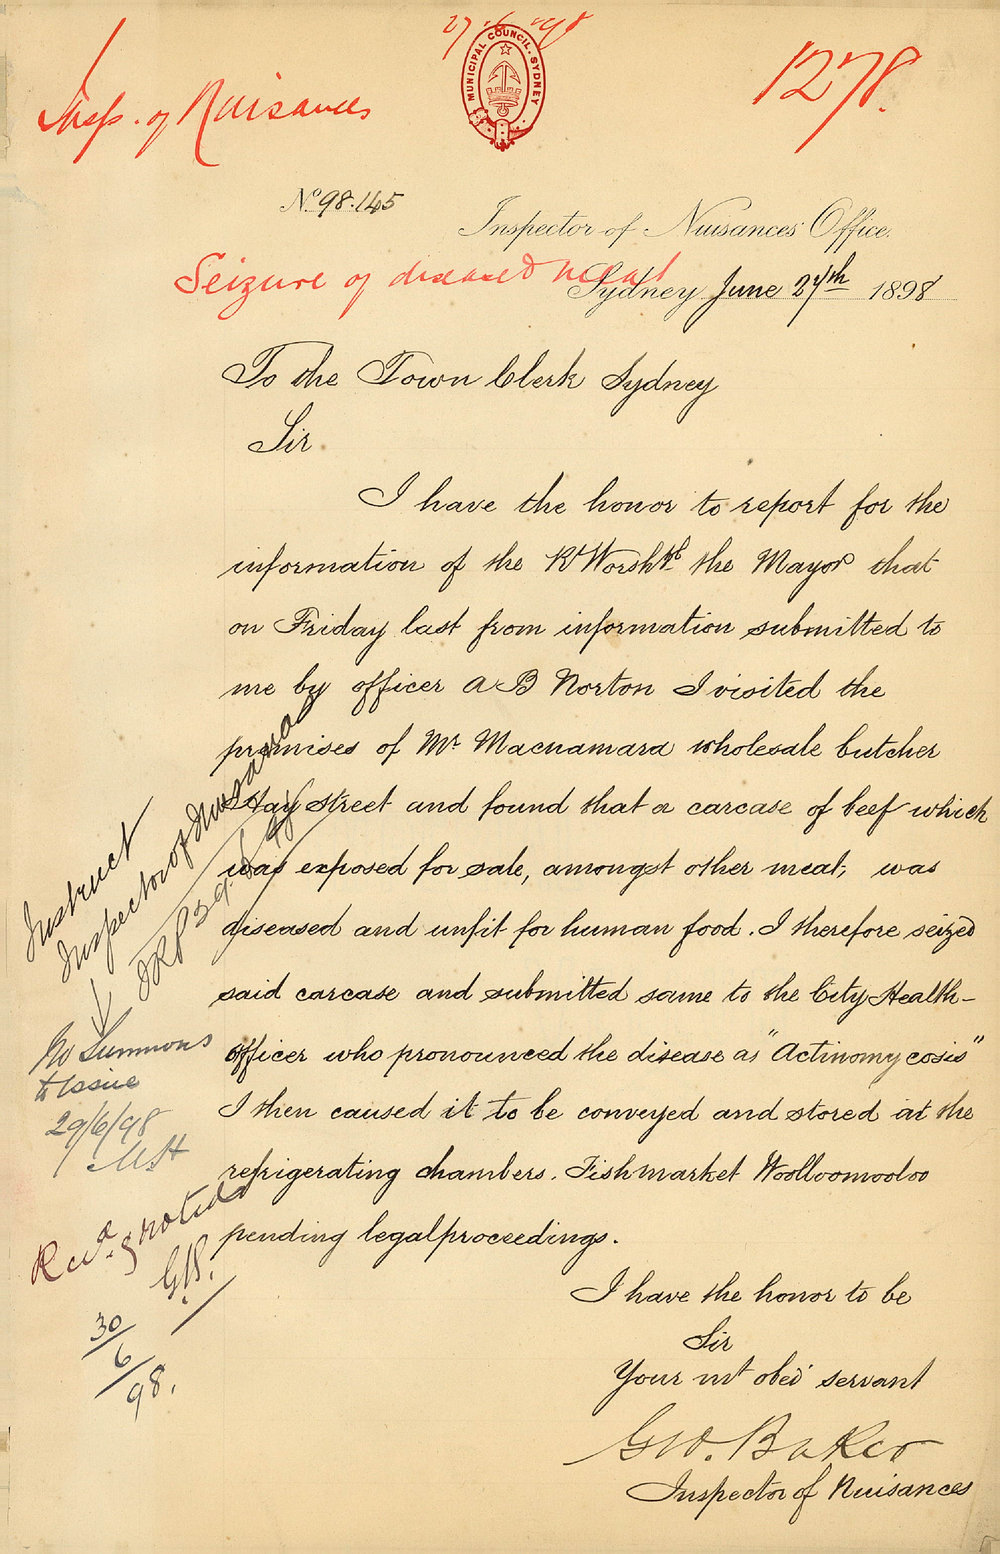 27.6.98
MUNICIPAL COUNCIL. SYDNEY
1278.
Insp. of Nuisances
No. 98.145
Inspector of Nuisances' Office.
Seizure of diseased meat
Sydney June 27th 1898
To the Town Clerk Sydney
Sir
I have the honor to report for the
information of the Rt Worshl the Mayor that
on Friday last from information submitted to
me by officer A B Norton I visited the
premises of Mr Macnamara wholesale butcher
Hay Street and found that a carcase of beef which
was exposed for sale, amongst other meat, was
diseased and unfit for human food. I therefore seized
said carcase and submitted same to the City Health-
officer who pronounced the disease as "Actinomycosis"
I then caused it to be conveyed and stored at the
refrigerating chambers. Fishmarket Woolloomooloo
pending legal proceedings.
I have the honor to be
Sir
Your mt obed servant
Geo. Baker
Inspector of Nuisances
Instruct
Inspector of Nuisances
29.6.98
No Summons
to issue
29/6/98
Recd. & noted
G.B.
30/6/98.